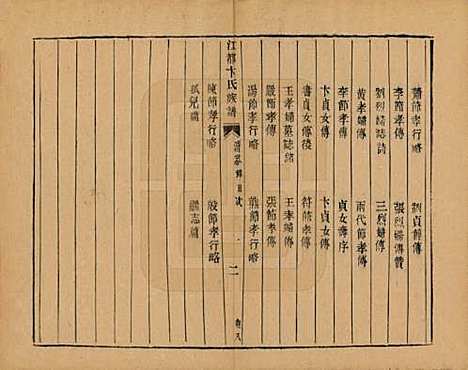 蕭節孝傳 劉貞節傳
李節孝傳 張烈婦傳贊
劉烈婦誌詩 三烈婦傳
黃孝婦傳 兩代節孝傳
李節孝傳 貞女傳序
卞貞女傳 卞貞女傳
書貞女傳後 符節孝傳
王孝婦墓誌銘 王孝婦傳
嚴節孝傳 張節孝傳
湯節孝行略 龔節孝行略
江都卞氏族譜 目次 二 卷八
陳節孝行略 殷節孝行略
孤兒篇 繼志篇